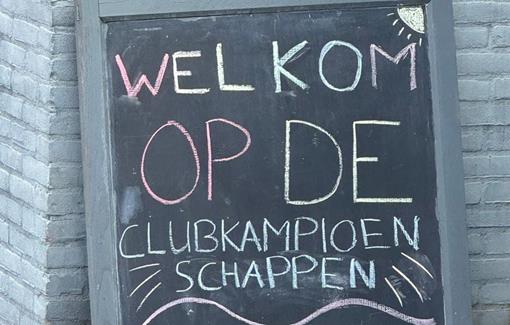 WELKOM
OP DE
CLUBKAMPIOEN
SCHAPPEN